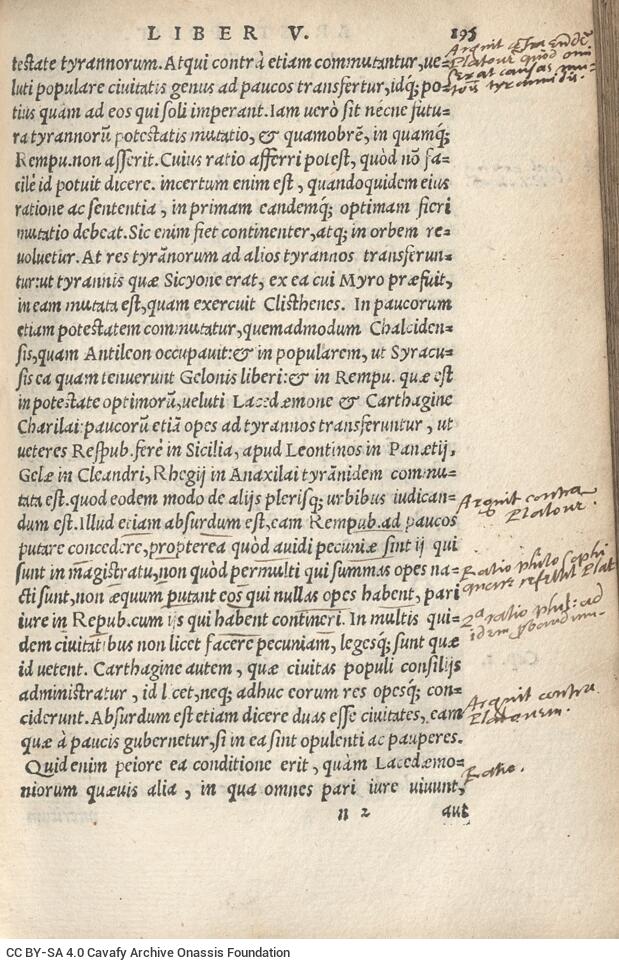 LIBER V. 195
testate tyrannorum. Atqui contrà etiam commutantur, ue=
luti populare ciuitatis genus ad paucos transfertur, idq́; po=
tius quàm ad eos qui soli imperant. Iam uerò sit nécne futu=
ra tyrannorũ potestatis mutatio, & quamobrẽ, in quamq́;
Rempu. non asserit. Cuius ratio afferri potest, quòd nõ fa=
cilè id potuit dicere. incertum enim est, quandoquidem eius
ratione ac sententia, in primam eandemq́; optimam fieri
mutatio debeat. Sic enim fiet continenter, atq; in orbem re=
uoluetur. At res tyrãnorum ad alios tyrannos transferun=
tur: ut tyrannis quæ Sicyone erat, ex ea cui Myro præfuit,
in eam mutata est, quam exercuit Clisthenes. In paucorum
etiam potestatem commutatur, quemadmodum Chalciden=
sis, quam Antileon occupauit: & in popularem, ut Syracu=
sis ea quam tenuerunt Gelonis liberi: & in Rempu. quæ est
in potestate optimorũ, ueluti Lacedæmone & Carthagine
Charilai: paucorũ etiã opes ad tyrannos transferuntur, ut
ueteres Respub. ferè in Sicilia, apud Leontinos in Panætij,
Gelæ in Cleandri, Rhegij in Anaxilai tyrãnidem commu=
tata est. quod eodem modo de alijs plerisq; urbibus iudican=
dum est. Illud etiam absurdum est, eam Rempub. ad paucos
putare concedere, propterea quòd auidi pecuniæ sint ij qui
sunt in magistratu, non quòd permulti qui summas opes na=
cti sunt, non æquum putant eos qui nullas opes habent, pari
iure in Repub. cum ijs qui habent contineri. In multis qui=
dem ciuitatibus non licet facere pecuniam, legesq́; sunt quæ
id uetent. Carthagine autem, quæ ciuitas populi consilijs
administratur, id licet, neq; adhuc eorum res opesq́; con=
ciderunt. Absurdum est etiam dicere duas esse ciuitates, eam
quæ à paucis gubernetur, si in ea sint opulenti ac pauperes.
Quid enim peiore ea conditione erit, quàm Lacedæmo=
niorum quæuis alia, in qua omnes pari iure uiuunt,
n 2 aut
Arguit contra
Platonem.
Ratio philosophi
2ª ratio phi: ad
Arguit contra
Platonem.
Ratio.
CC BY-SA 4.0 Cavafy Archive Onassis Foundation